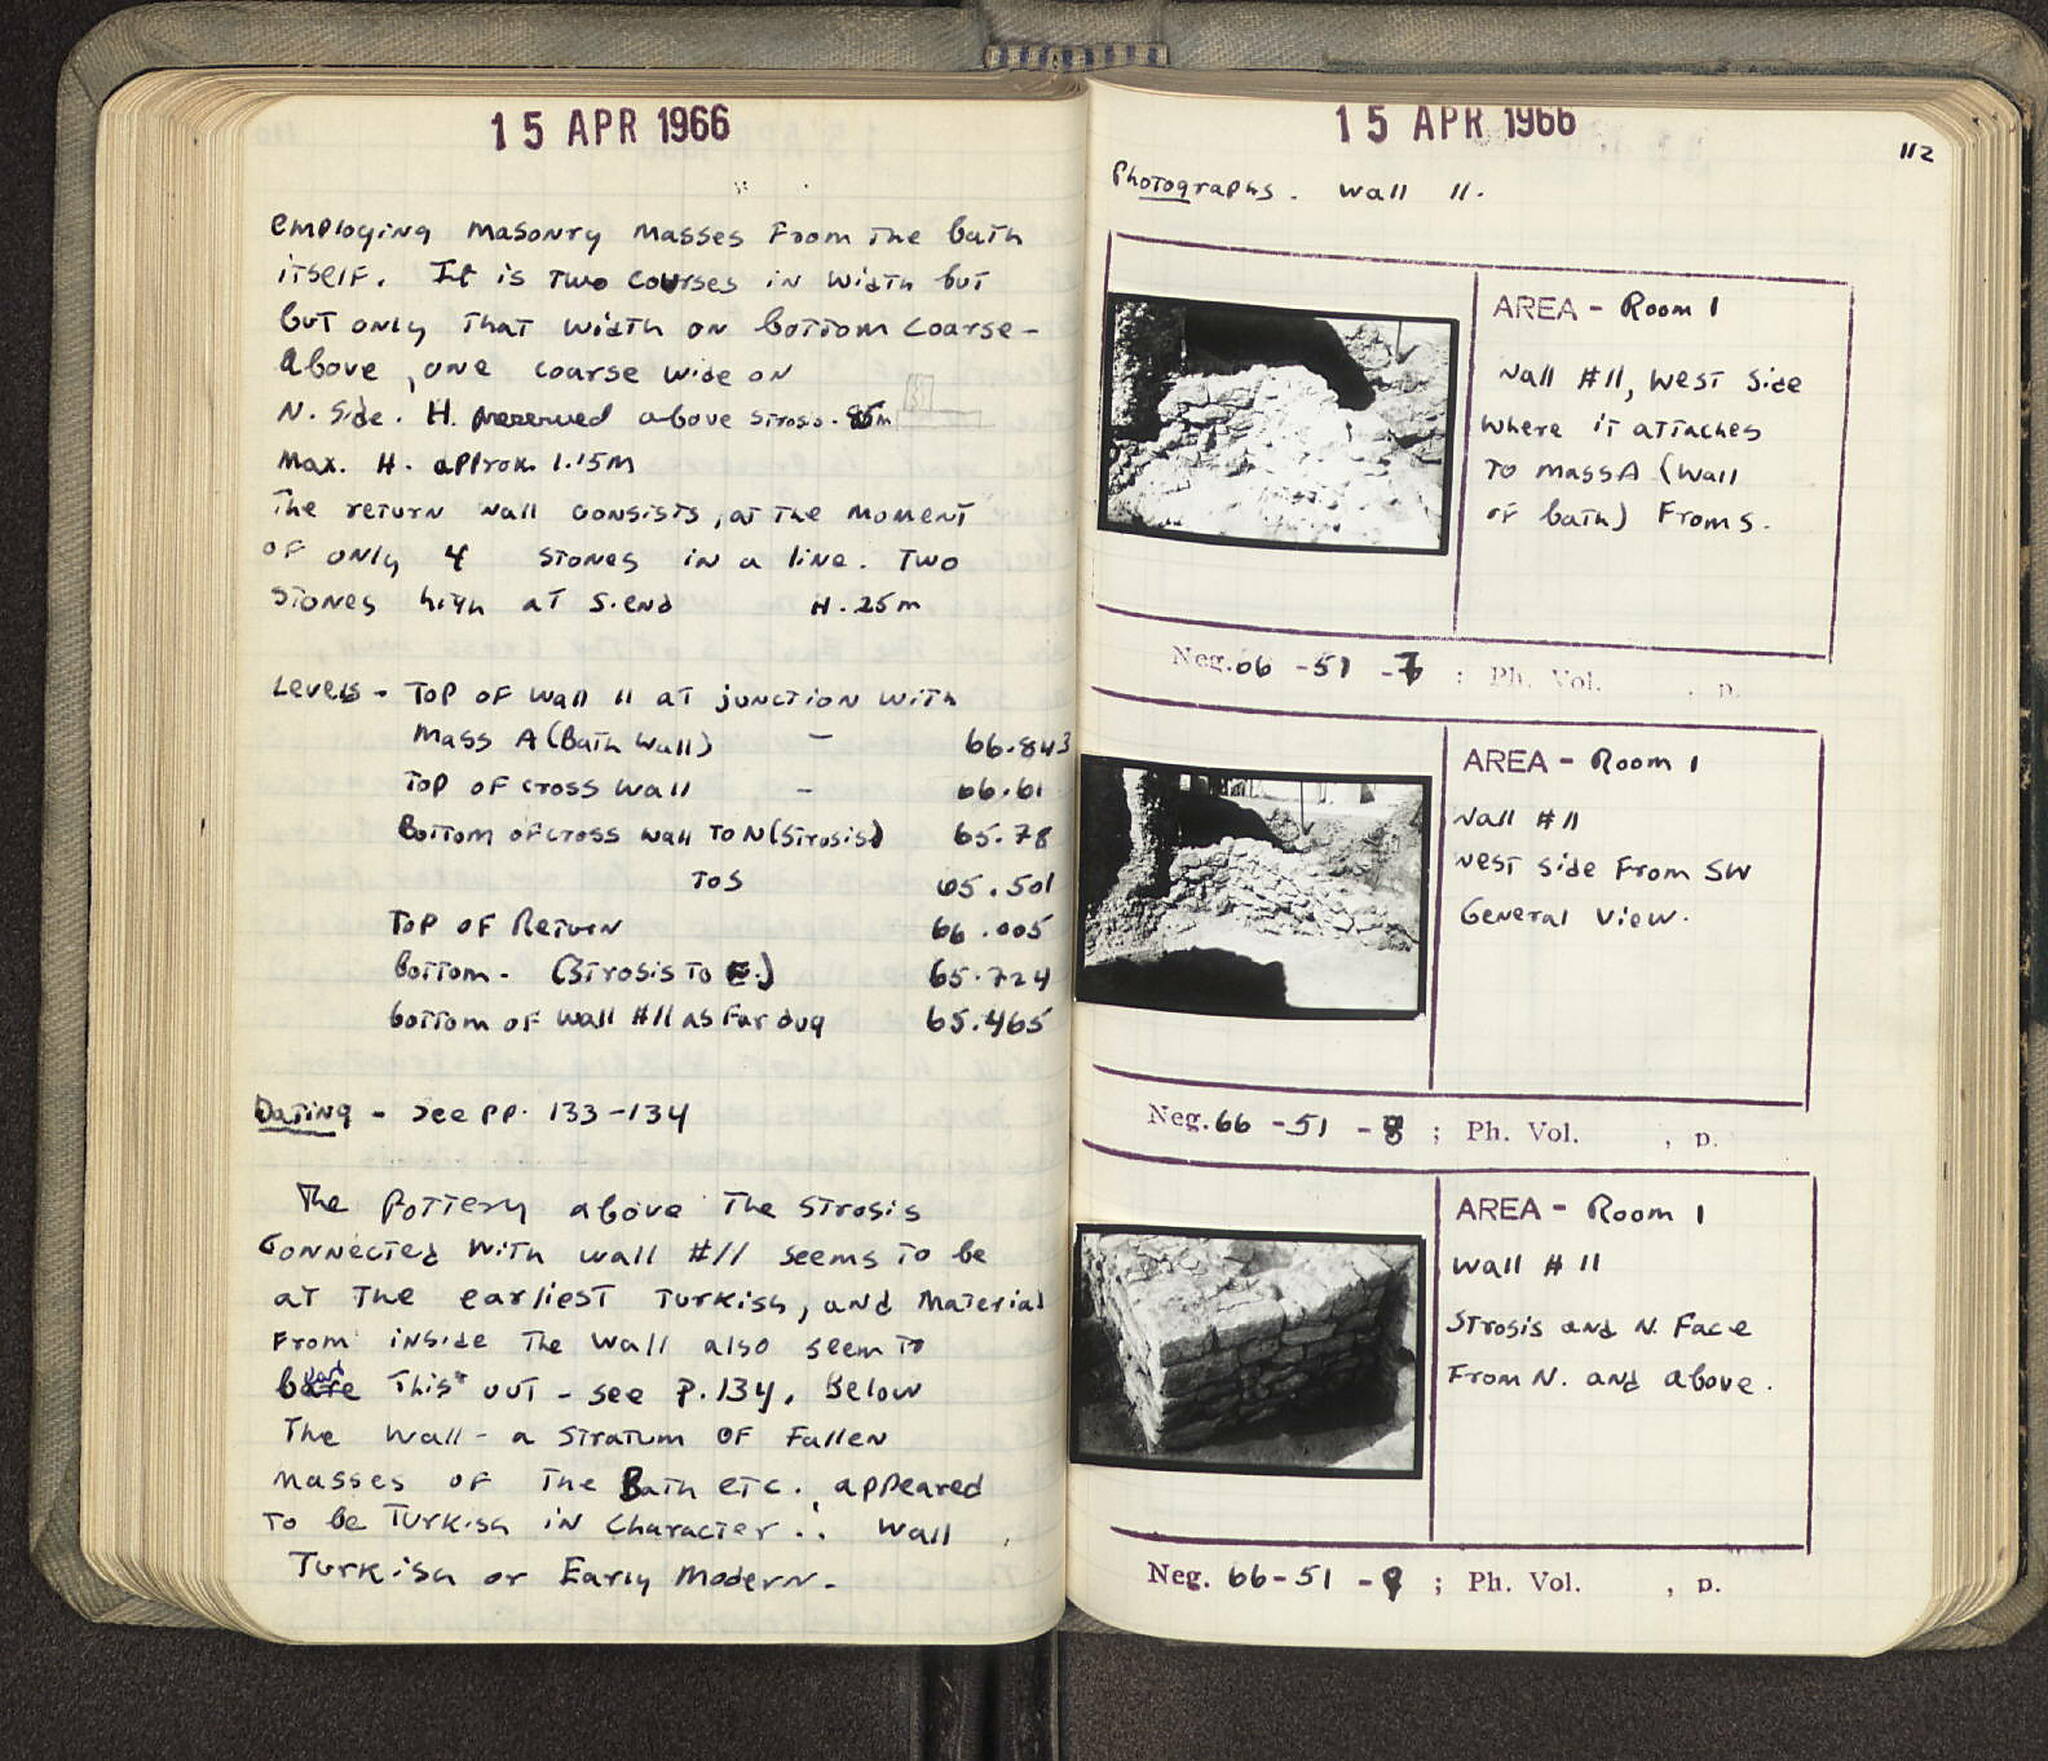 15 APR 1966
employing masonry masses from the bath
itself. It is two courses in width but
but only that width on bottom coarse -
above, one coarse wide on
N. Side. H. preserved above strosis .85m
Max. H. approx. 1.15m
The return wall consists, at the moment
of only 4 stones in a line. Two
stones high at S. end H. 25m
Levels - Top of wall 11 at junction with
Mass A (Bath Wall) - 66.843
Top of cross wall - 66.61
Bottom of cross wall To N (Strosis) 65.78
To S 65.501
Top of Return 66.005
bottom. (Strosis To E.) 65.724
bottom of Wall #11 as far dug 65.465
Dating - See pp. 133-134
The pottery above the strosis
connected with wall #11 seems to be
at the earliest Turkish, and material
from inside the wall also seem to
this out - see p. 134. Below
The wall - a stratum of fallen
masses of the Bath etc. appeared
to be Turkish in character ∴ Wall
Turkish or Early Modern.
15 APR 1966
112
Photographs. Wall 11.
AREA - Room 1
Wall #11, West Side
where it attaches
to mass A (Wall
of bath) From S.
Neg. 66 -51 -7 ; Ph. Vol. , p.
AREA - Room 1
Wall #11
West side From SW
General View.
Neg. 66 -51 -8 ; Ph. Vol. , p.
AREA - Room 1
Wall #11
Strosis and N. Face
From N. and above.
Neg. 66-51 -9 ; Ph. Vol. , p.